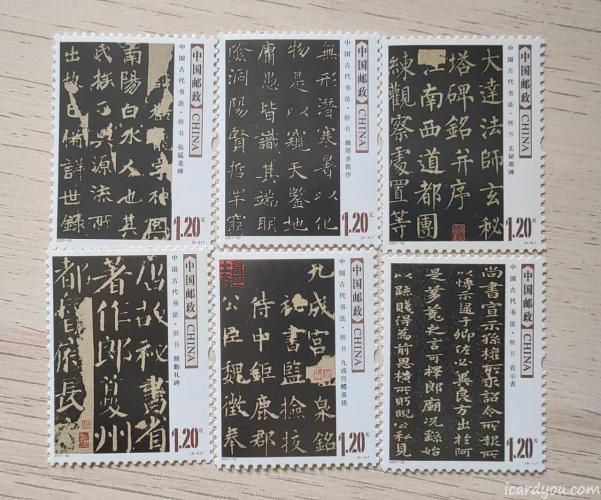 神冏
南陽白水人也其
氏族分興源流所
出故已備詳世錄
中国邮政 CHINA
中国古代书法·楷书 张猛龙碑
1.20元
無形潛寒暑以化
物是以窺天鑒地
庸愚皆識其端明
陰洞陽賢哲罕窮
中国邮政 CHINA
中国古代书法·楷书 雁塔圣教序
1.20元
大達法師玄秘
塔碑銘并序
江南西道都團
練觀察處置等
中国邮政 CHINA
中国古代书法·楷书 玄秘塔碑
1.20元
唐故祕書省
著作郎夔州
都督府長
中国邮政 CHINA
中国古代书法·楷书 颜勤礼碑
1.20元
九成宮醴泉銘
祕書監撿挍
侍中鉅鹿郡
公臣魏徵奉
中国邮政 CHINA
中国古代书法·楷书 九成宫醴泉铭
1.20元
尚書宣示孫權所求詔令所報所
以博示逮于卿佐必冀良方出於阿
是芻蕘之言可擇郎廟況繇始
以疏賤得為前恩橫所眄睨公私見
中国邮政 CHINA
中国古代书法·楷书 宣示表
1.20元
icardyou.com